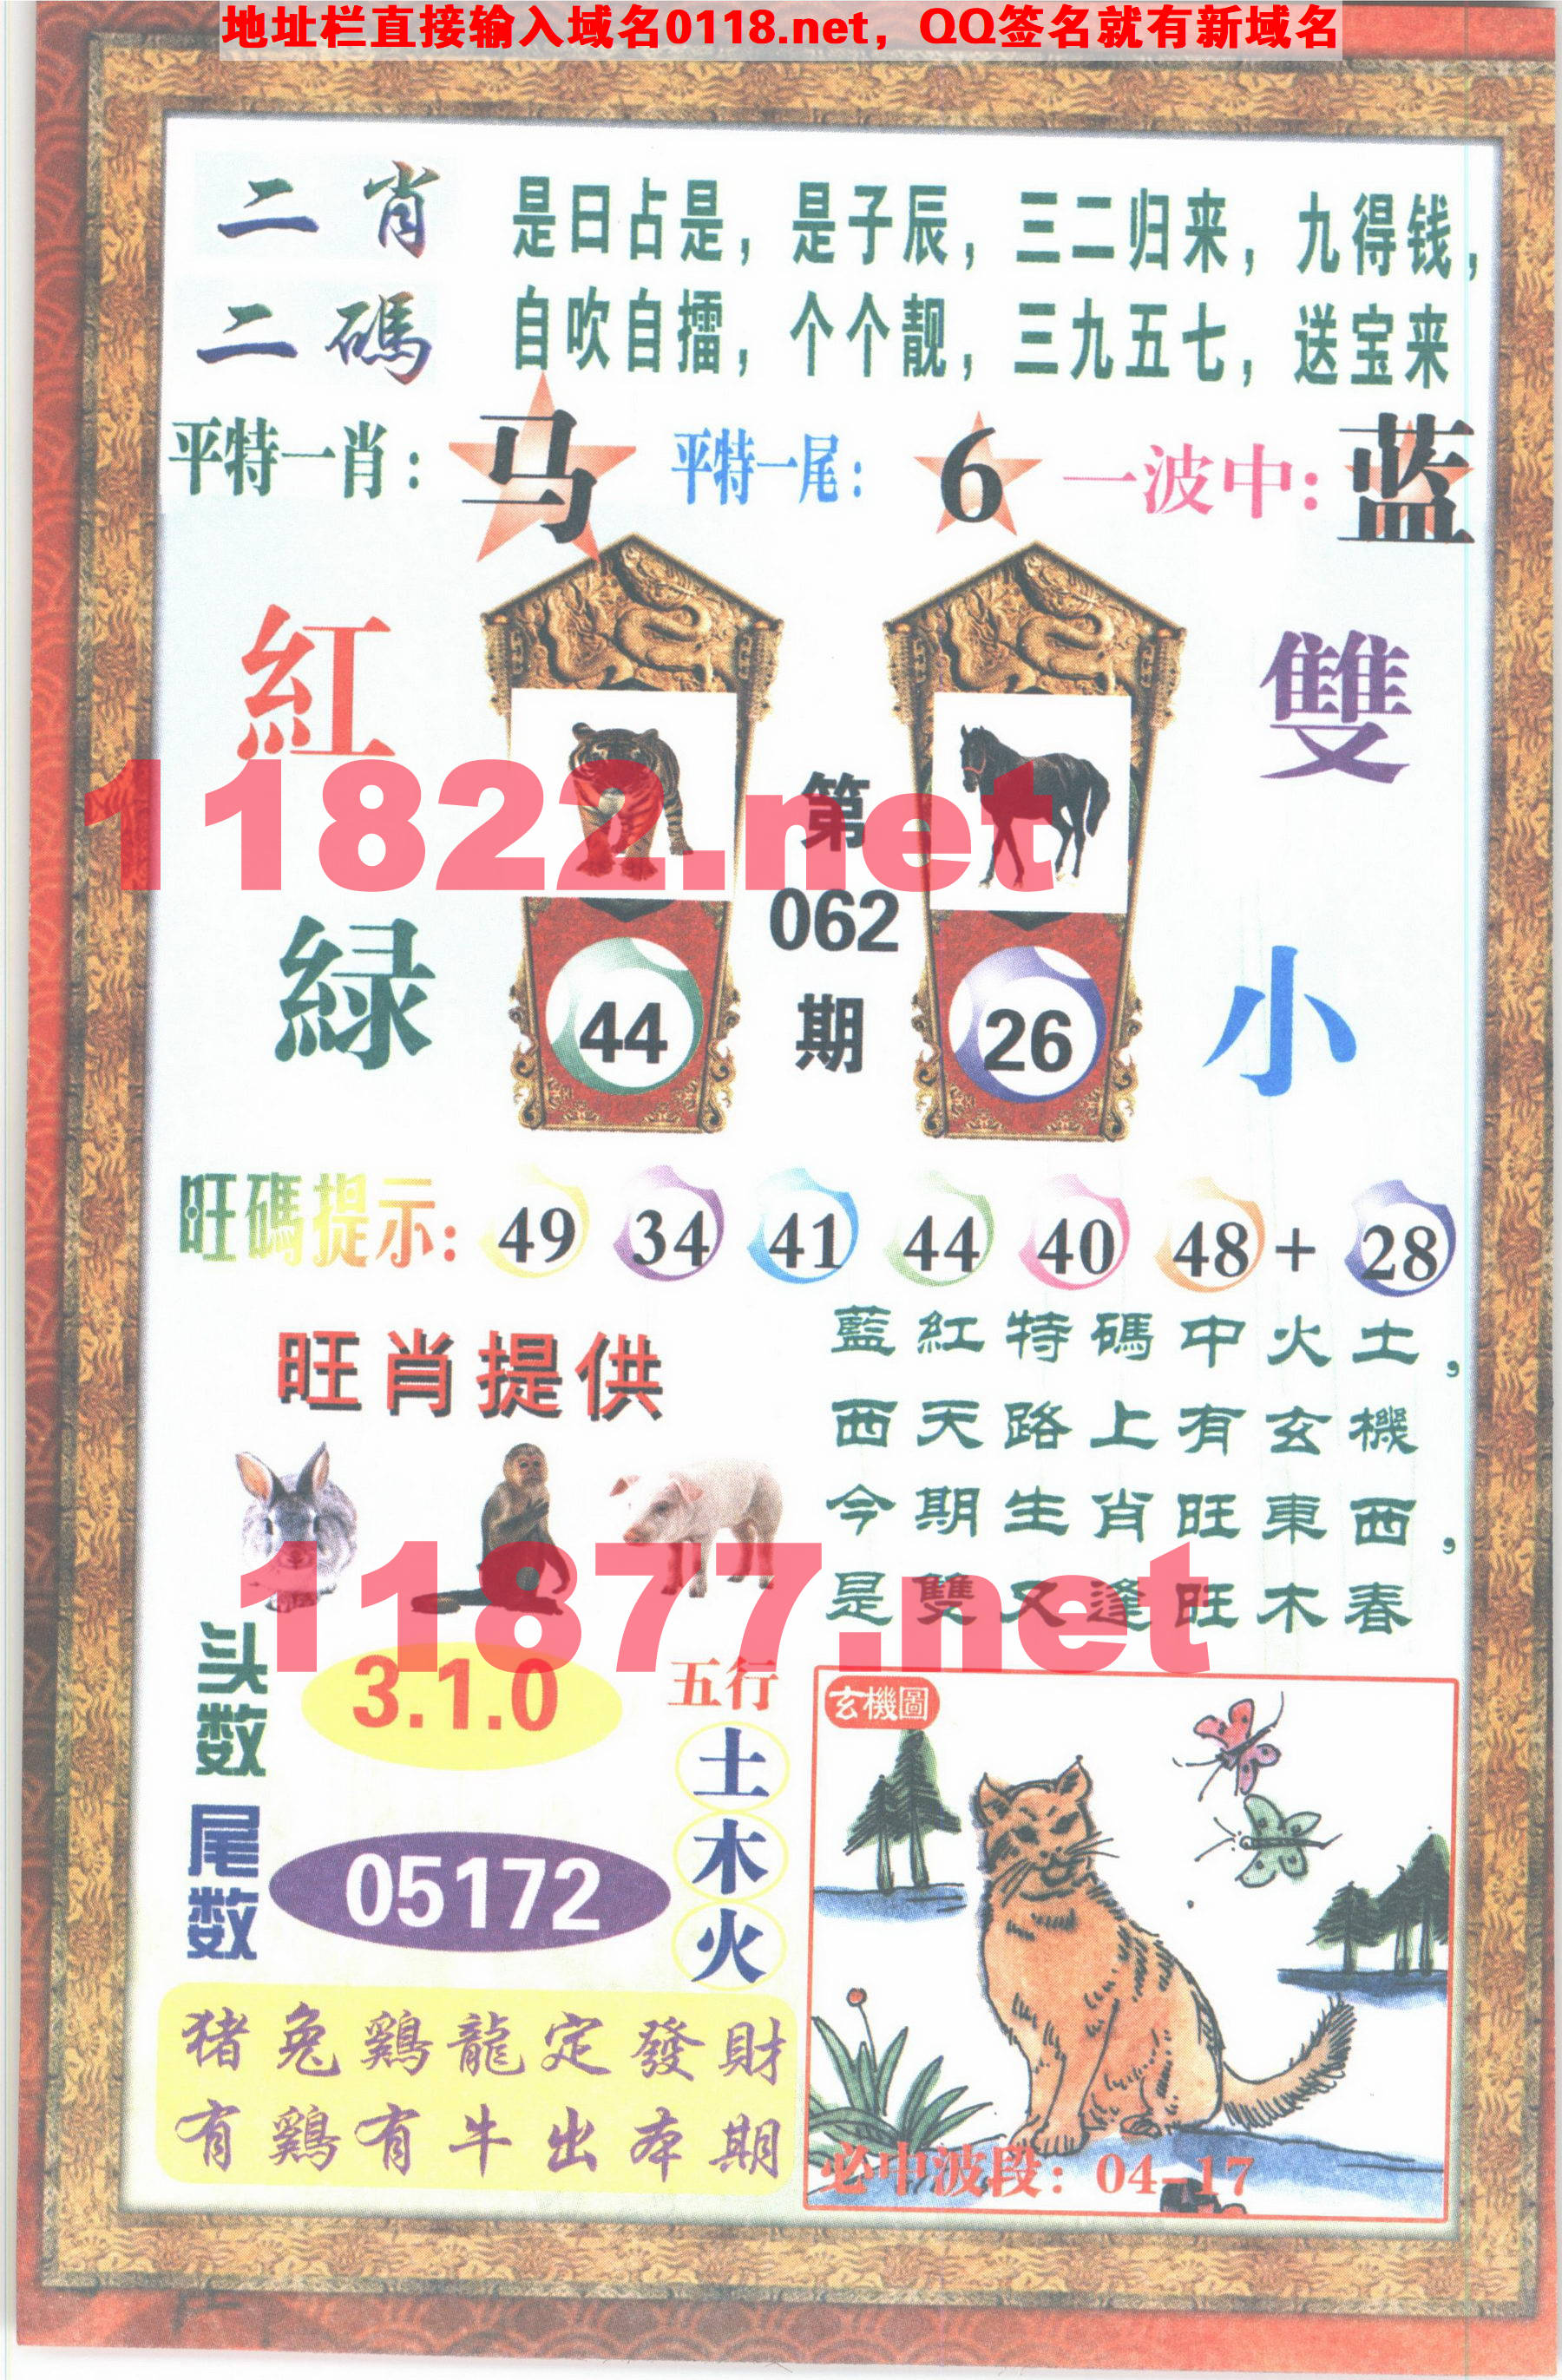 地址栏直接输入域名0118.net，QQ签名就有新域名
二肖 是日占是，是子辰，三二归来，九得钱，
二碼 自吹自擂，个个靓，三九五七，送宝来
平特一肖：马 平特一尾：6 一波中：蓝
紅
雙
11822.net
第
062
期
綠
44
26
小
旺碼提示：49 34 41 44 40 48 + 28
旺肖提供
藍紅特碼中火土，
西天路上有玄機
今期生肖旺東西，
是雙又逢旺木春
11877.net
头数 3.1.0
尾数 05172
五行
土
木
火
猪兔鷄龍定發財
有鷄有牛出本期
玄機圖
必中波段：04-17